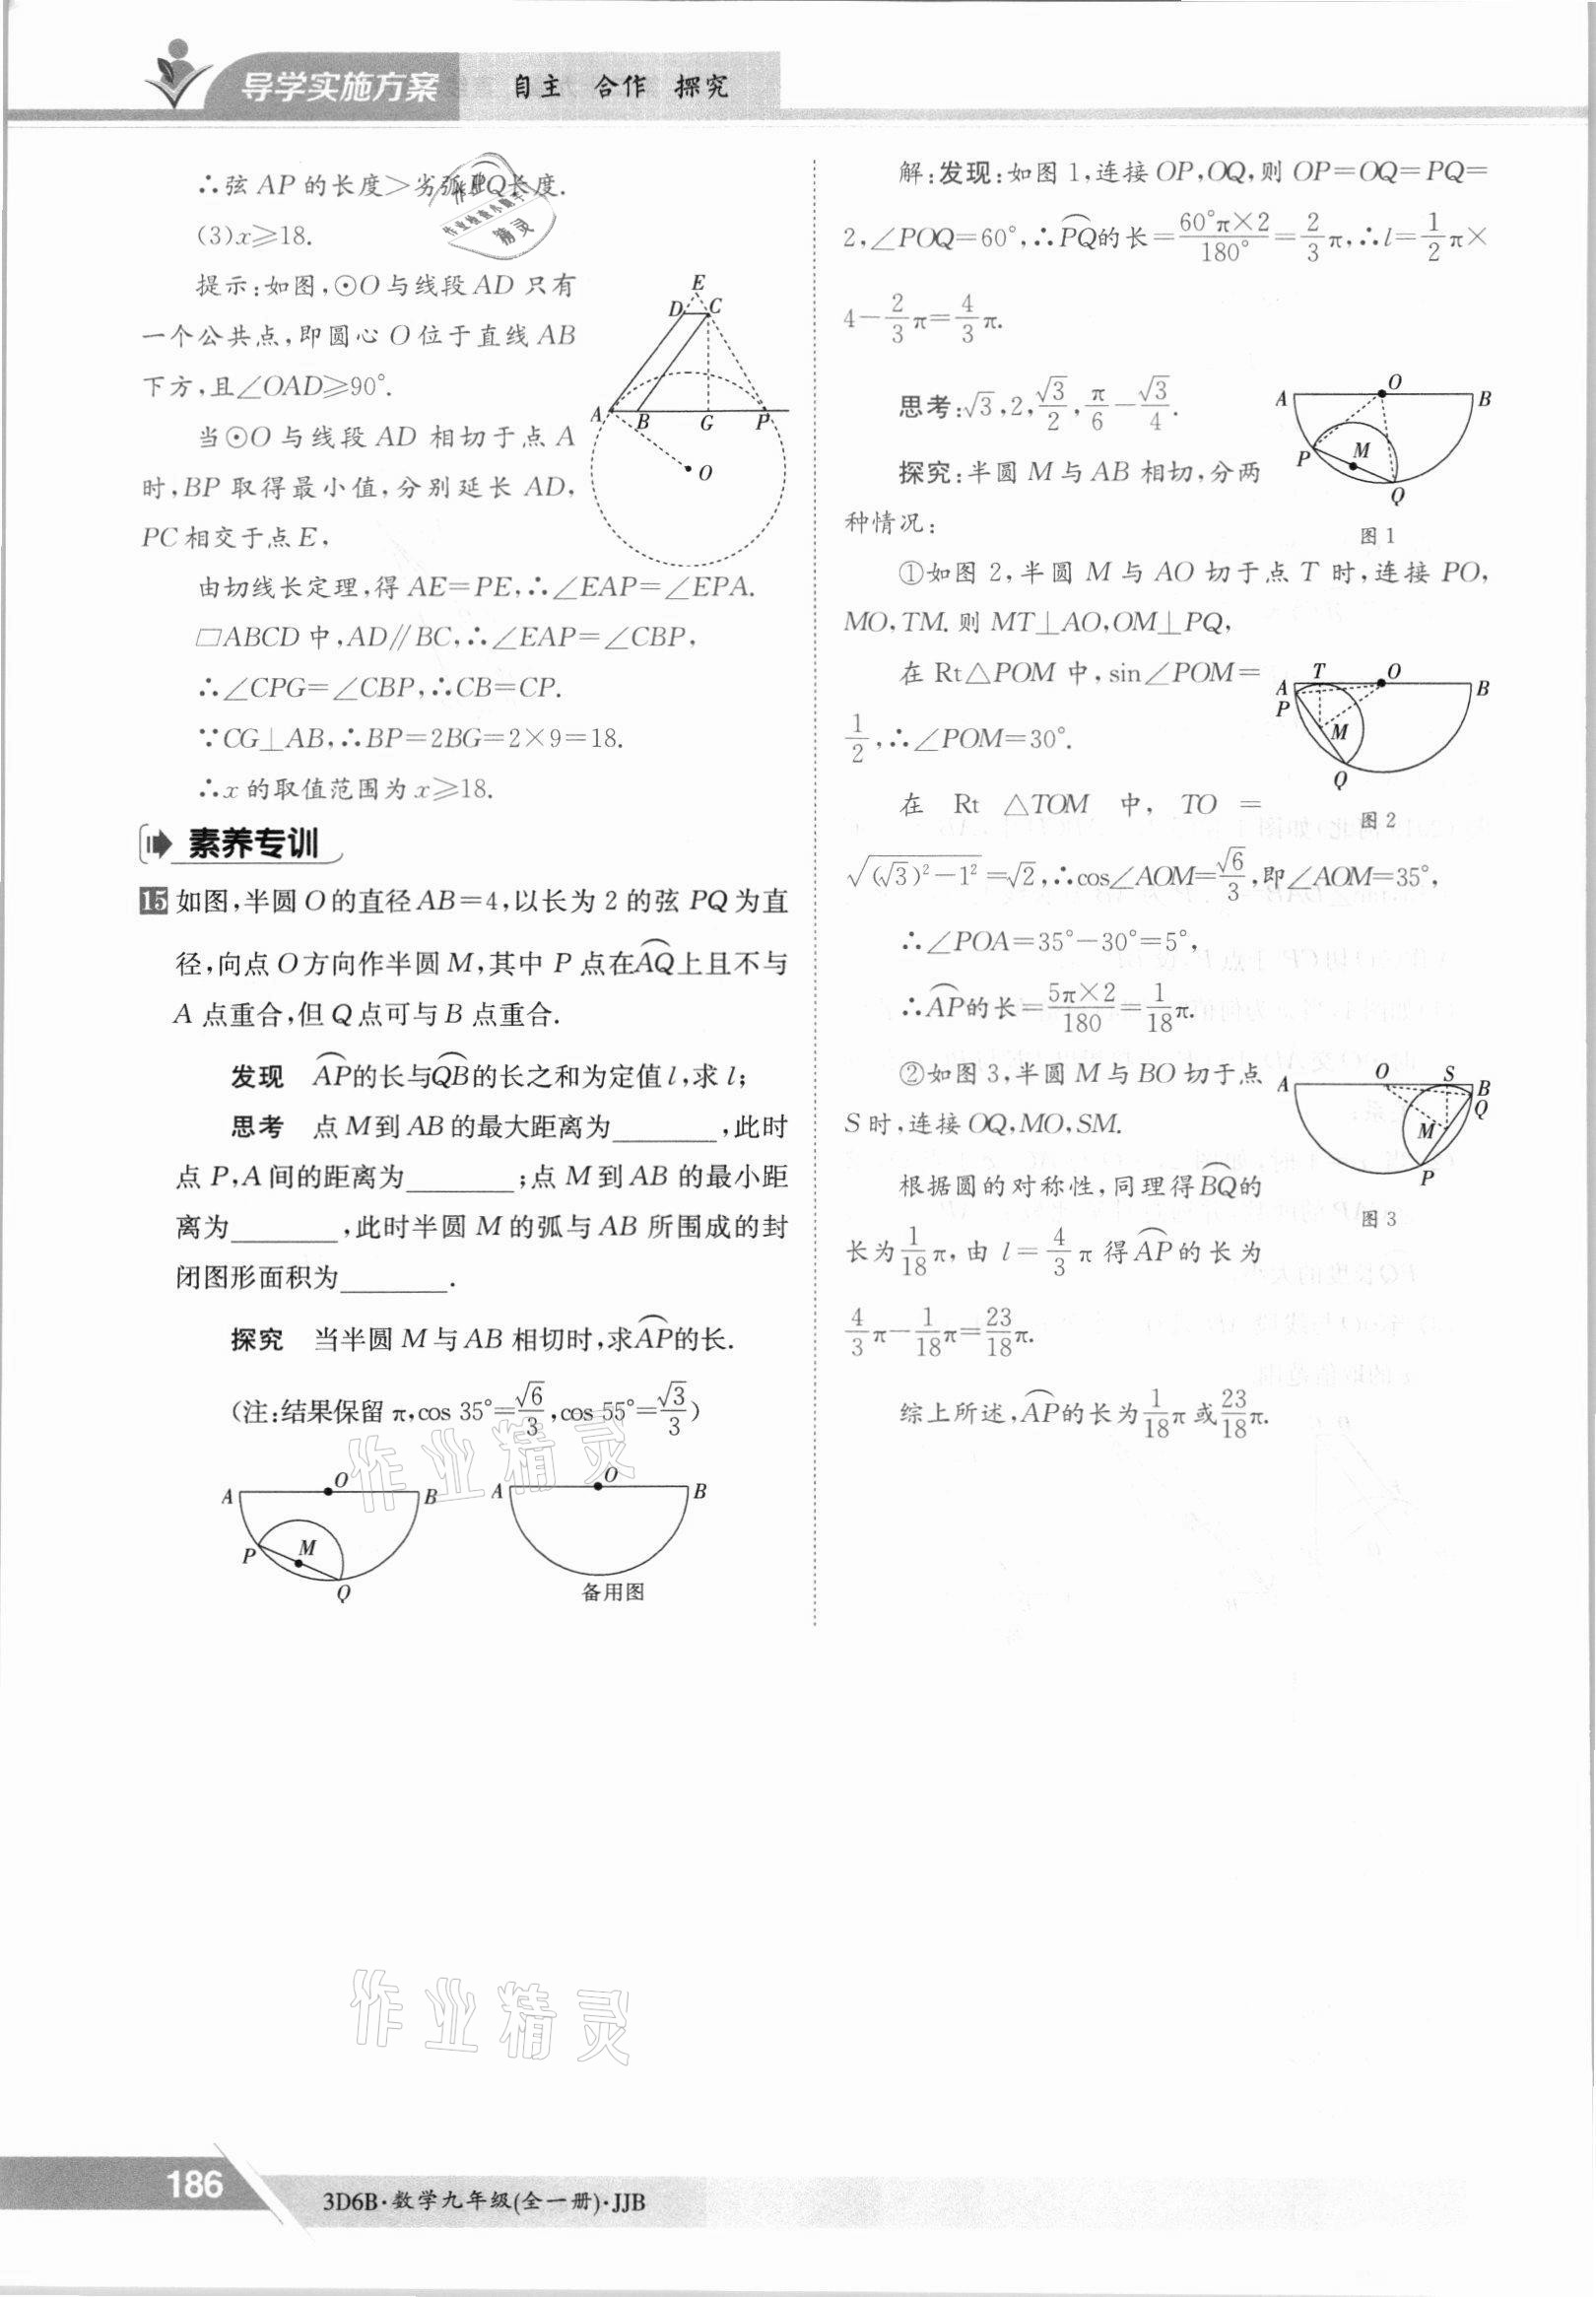 导学实施方案 自主 合作 探究
∴弦 AP 的长度>劣弧PQ长度.
(3)x≥18.
提示:如图,⊙O与线段AD 只有
一个公共点,即圆心 O位于直线 AB
下方,且∠OAD≥90°.
当⊙O 与线段 AD 相切于点 A
时,BP 取得最小值,分别延长 AD,
PC相交于点E,
由切线长定理,得 AE=PE,∴∠EAP=∠EPA.
□ABCD 中,AD∥BC,∴∠EAP=∠CBP,
∴∠CPG=∠CBP,∴CB=CP.
∵CG⊥AB,∴BP=2BG=2×9=18.
∴x 的取值范围为 x≥18.
E
D C
A B G P
O
素养专训
15 如图,半圆O的直径AB=4,以长为 2 的弦 PQ 为直
径,向点O方向作半圆M,其中 P 点在⌒AQ上且不与
A 点重合,但Q点可与B 点重合.
发现 ⌒AP的长与⌒QB的长之和为定值l,求l;
思考 点M到AB的最大距离为________,此时
点 P,A间的距离为________;点 M到AB 的最小距
离为________,此时半圆 M 的弧与 AB 所围成的封
闭图形面积为________.
探究 当半圆M与AB 相切时,求⌒AP的长.
(注:结果保留 π,cos 35°=√6/3,cos 55°=√3/3)
A O B
P M
Q
A O B
备用图
解:发现:如图 1,连接OP,OQ,则 OP=OQ=PQ=
2,∠POQ=60°,∴⌒PQ的长=60°π×2/180°=2/3π,∴l=1/2π×
4-2/3π=4/3π.
思考:√3,2,√3/2,π/6-√3/4.
探究:半圆 M 与 AB 相切,分两
种情况:
A O B
P M
Q
图1
①如图 2,半圆 M 与 AO 切于点 T 时,连接 PO,
MO,TM.则 MT⊥AO,OM⊥PQ,
在 Rt△POM 中,sin∠POM=
1/2,∴∠POM=30°.
在 Rt △TOM 中, TO =
A T O B
P
M
Q
图2
√((√3)²-1²)=√2,∴cos∠AOM=√6/3,即∠AOM=35°,
∴∠POA=35°-30°=5°,
∴⌒AP的长=5π×2/180=1/18π.
②如图 3,半圆M与BO切于点
S时,连接OQ,MO,SM.
根据圆的对称性,同理得⌒BQ的
长为1/18π,由 l=4/3π得⌒AP的长为
4/3π-1/18π=23/18π.
A O S B
Q
M
P
图3
综上所述,⌒AP的长为1/18π或23/18π.
作业精灵
作业精灵
186
3D6B·数学九年级(全一册)·JJB